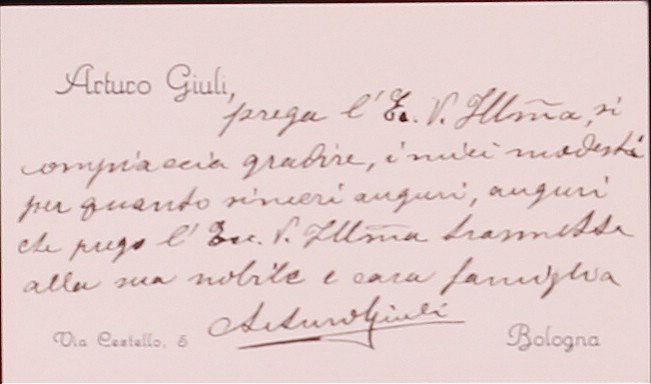 Arturo Giuli,
prega l'Ec. V. Illma, si
compiaccia gradire, i miei modesti
per quanto sinceri auguri, auguri
che prego l'Ecc. V. Illma trasmetta
alla sua nobile e cara famiglia
Arturo Giuli
Via Cestello, 5 Bologna